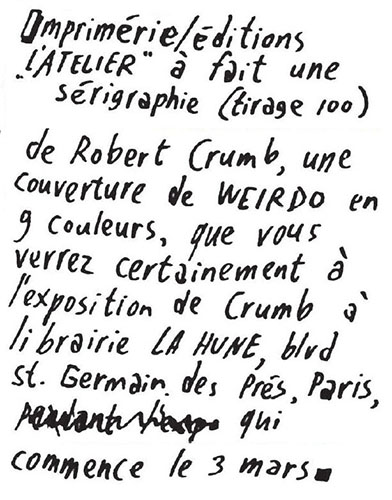 Imprimérie/éditions
"L'ATELIER" à fait une
sérigraphie (tirage 100)
de Robert Crumb, une
couverture de WEIRDO en
9 couleurs, que vous
verrez certainement à
l'exposition de Crumb à
librairie LA HUNE, blvd
st. Germain des Prés, Paris,
qui
commence le 3 mars.